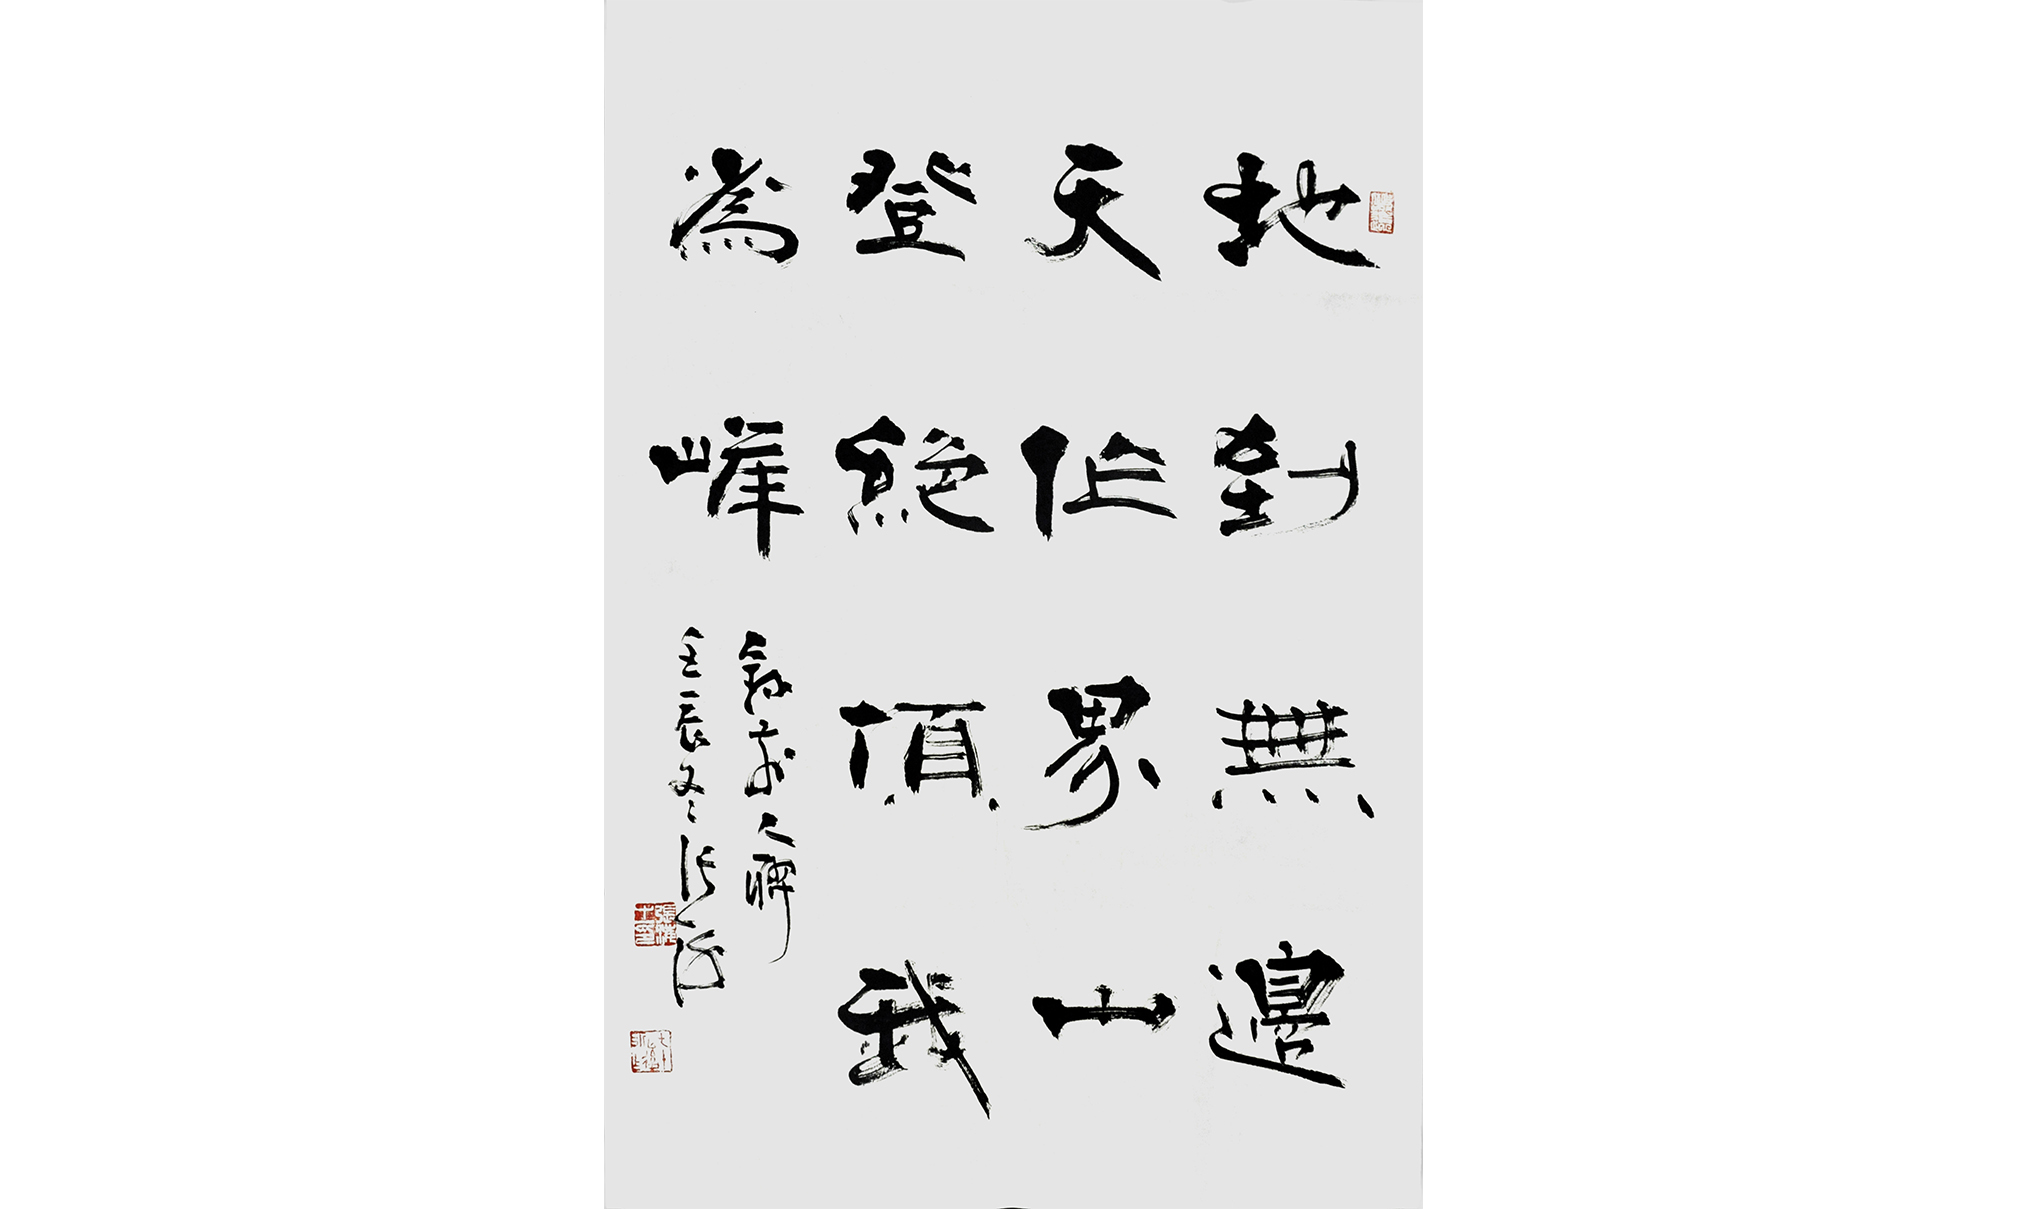 地到無邊
天作界山
登絕頂我
為峰
錄前人聯
壬辰冬張海